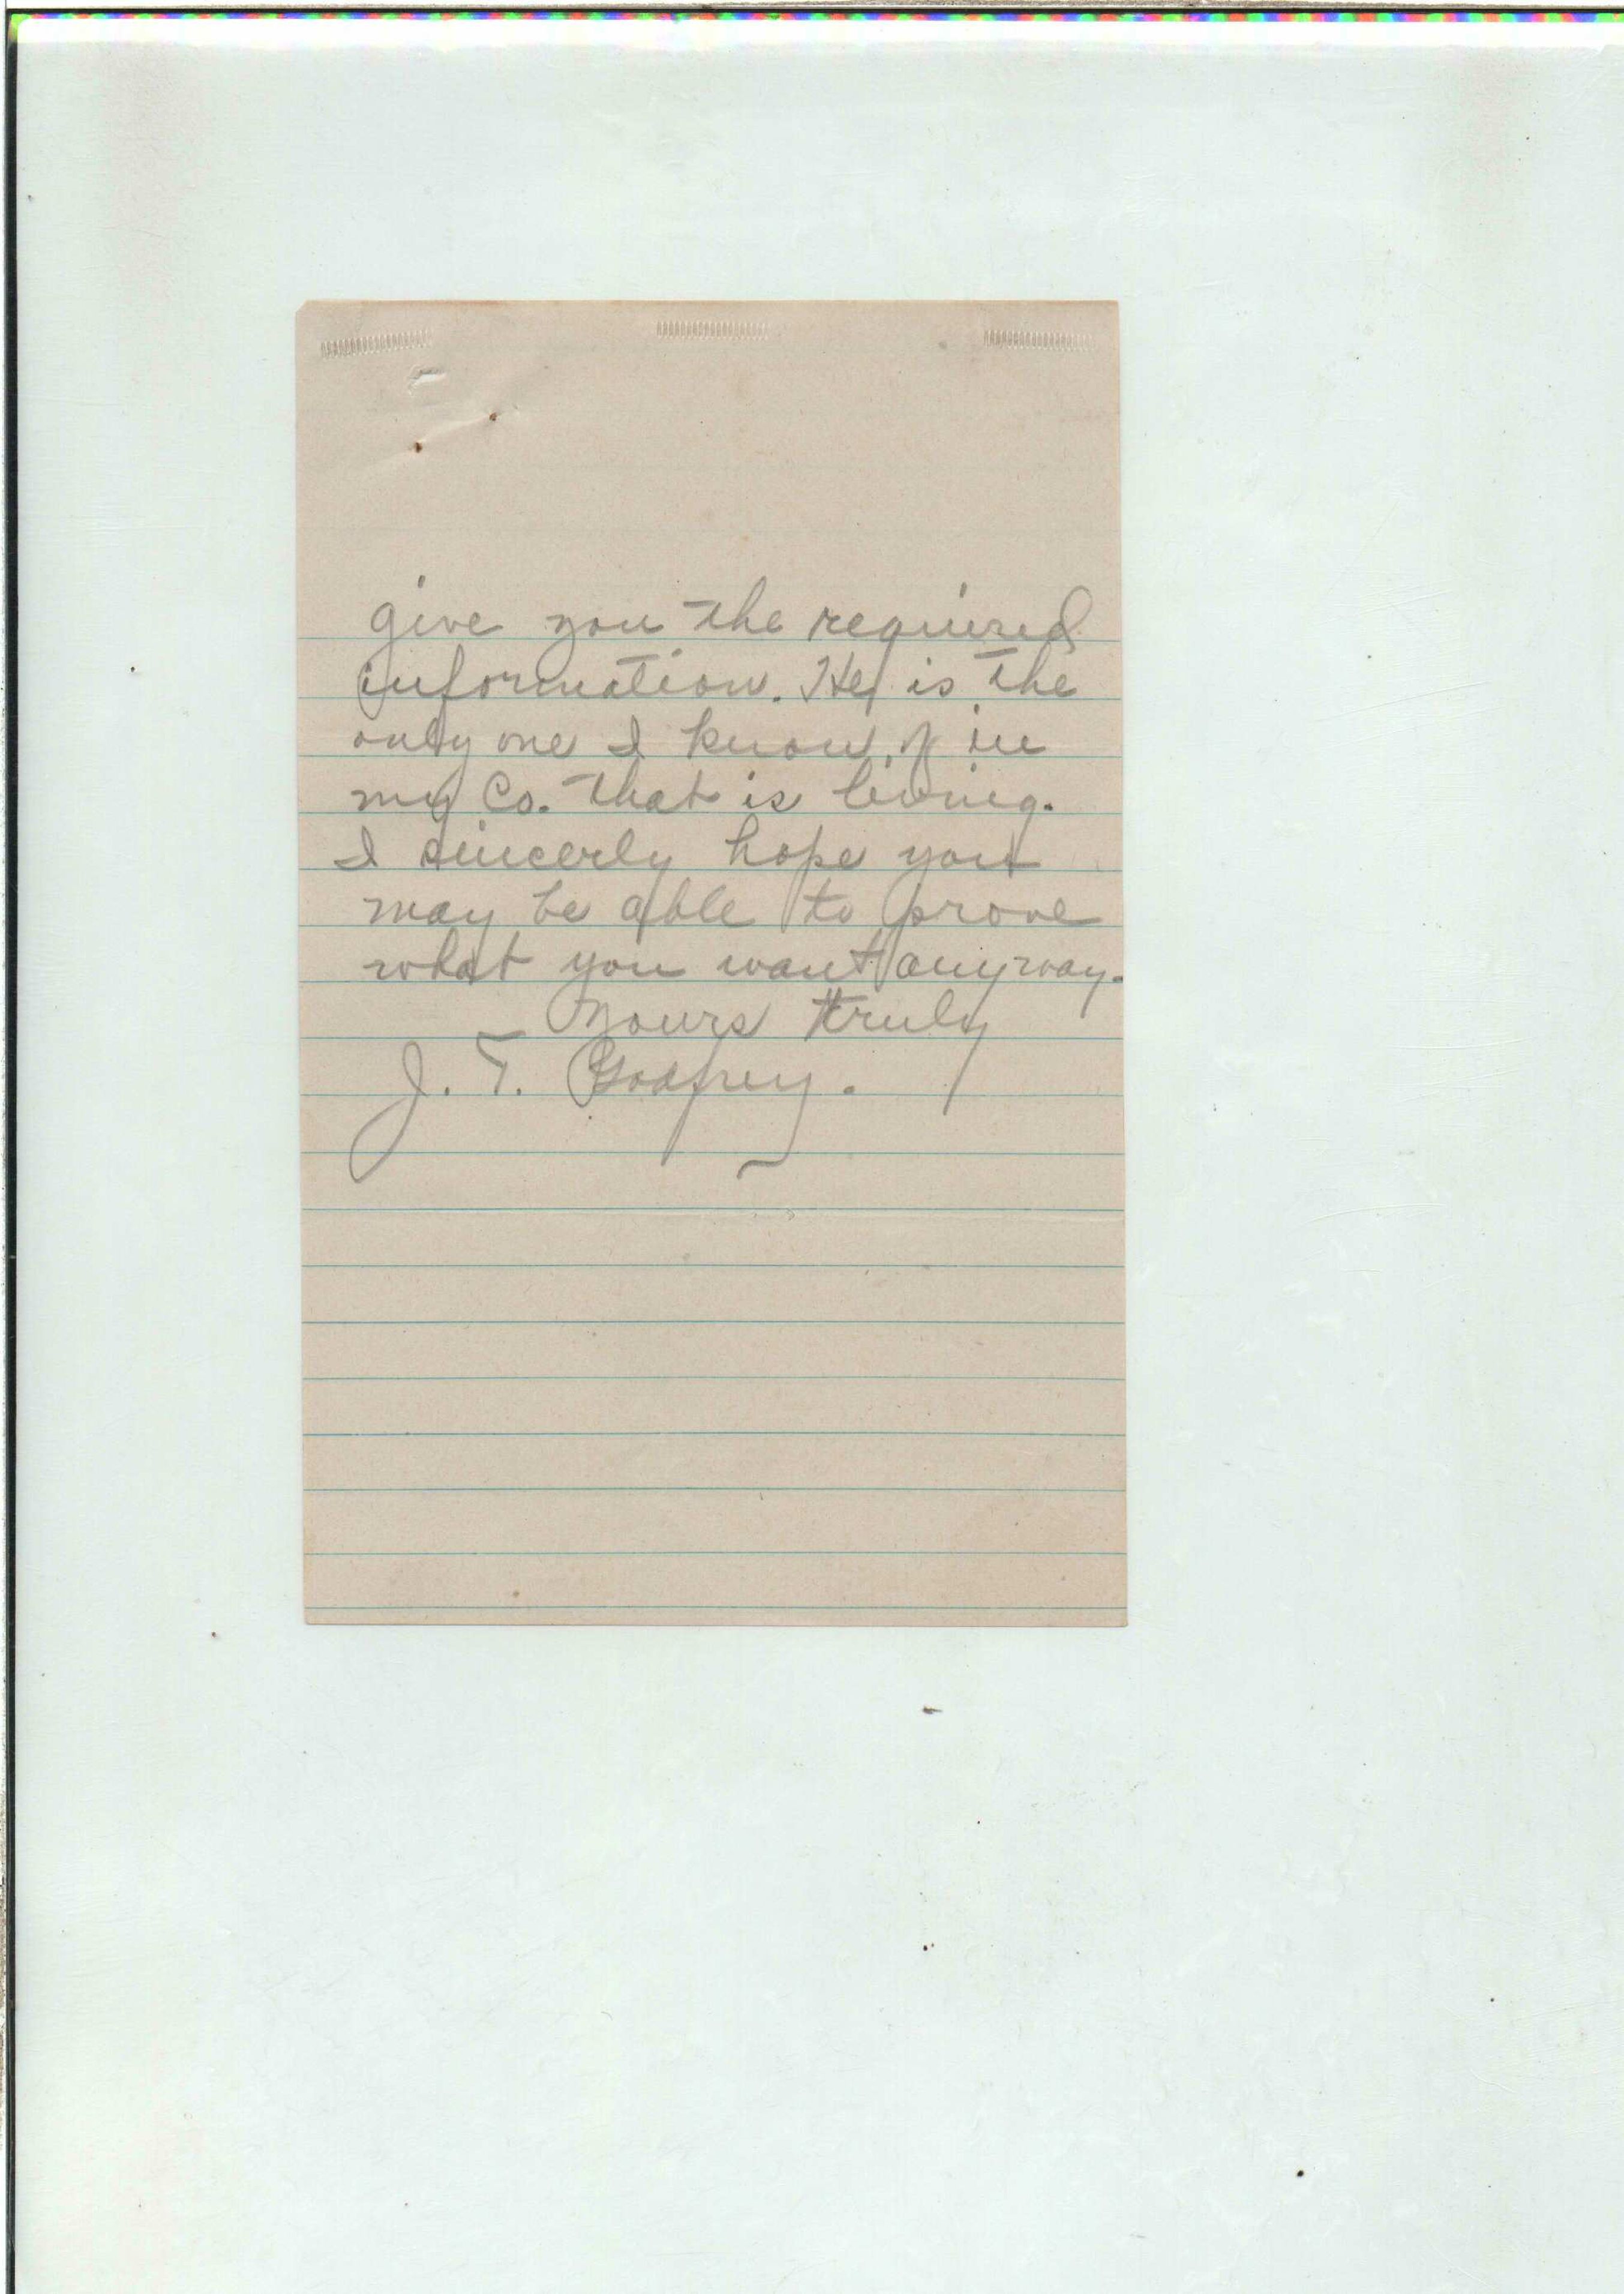 give you the required
information. He is the
only one I know of in
my Co. that is living.
I sincerly hope you
may be able to prove
what you want anyway.
Yours truly
J. T. Godfrey.